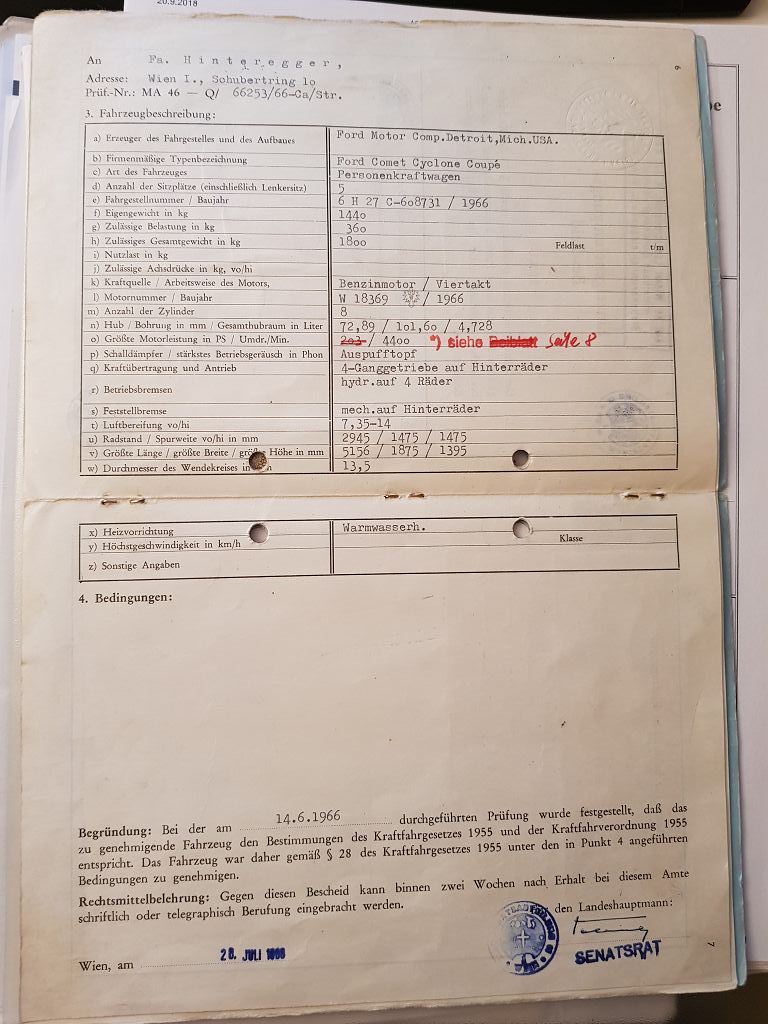 20.9.2018
An Fa. Hinteregger,
Adresse: Wien I., Schubertring 1o
Prüf.-Nr.: MA 46 — Q/ 66253/66-Ca/Str.
6
3. Fahrzeugbeschreibung:
a) Erzeuger des Fahrgestelles und des Aufbaues Ford Motor Comp.Detroit,Mich.USA.
b) Firmenmäßige Typenbezeichnung Ford Comet Cyclone Coupé
c) Art des Fahrzeuges Personenkraftwagen
d) Anzahl der Sitzplätze (einschließlich Lenkersitz) 5
e) Fahrgestellnummer / Baujahr 6 H 27 C-6o8731 / 1966
f) Eigengewicht in kg 144o
g) Zulässige Belastung in kg 36o
h) Zulässiges Gesamtgewicht in kg 18oo Feldlast t/m
i) Nutzlast in kg
j) Zulässige Achsdrücke in kg, vo/hi
k) Kraftquelle / Arbeitsweise des Motors, Benzinmotor / Viertakt
l) Motornummer / Baujahr W 18369 / 1966
m) Anzahl der Zylinder 8
n) Hub / Bohrung in mm / Gesamthubraum in Liter 72,89 / 1o1,6o / 4,728
o) Größte Motorleistung in PS / Umdr./Min. 2o3 / 44oo *) siehe Beiblatt Seite 8
p) Schalldämpfer / stärkstes Betriebsgeräusch in Phon Auspufftopf
q) Kraftübertragung und Antrieb 4-Ganggetriebe auf Hinterräder
r) Betriebsbremsen hydr.auf 4 Räder
s) Feststellbremse mech.auf Hinterräder
t) Luftbereifung vo/hi 7,35-14
u) Radstand / Spurweite vo/hi in mm 2945 / 1475 / 1475
v) Größte Länge / größte Breite / größte Höhe in mm 5156 / 1875 / 1395
w) Durchmesser des Wendekreises in 13,5
x) Heizvorrichtung Warmwasserh.
y) Höchstgeschwindigkeit in km/h Klasse
z) Sonstige Angaben
4. Bedingungen:
Begründung: Bei der am 14.6.1966 durchgeführten Prüfung wurde festgestellt, daß das
zu genehmigende Fahrzeug den Bestimmungen des Kraftfahrgesetzes 1955 und der Kraftfahrverordnung 1955
entspricht. Das Fahrzeug war daher gemäß § 28 des Kraftfahrgesetzes 1955 unter den in Punkt 4 angeführten
Bedingungen zu genehmigen.
Rechtsmittelbelehrung: Gegen diesen Bescheid kann binnen zwei Wochen nach Erhalt bei diesem Amte
schriftlich oder telegraphisch Berufung eingebracht werden.
den Landeshauptmann:
Wien, am 28. JULI 1966
SENATSRAT
7